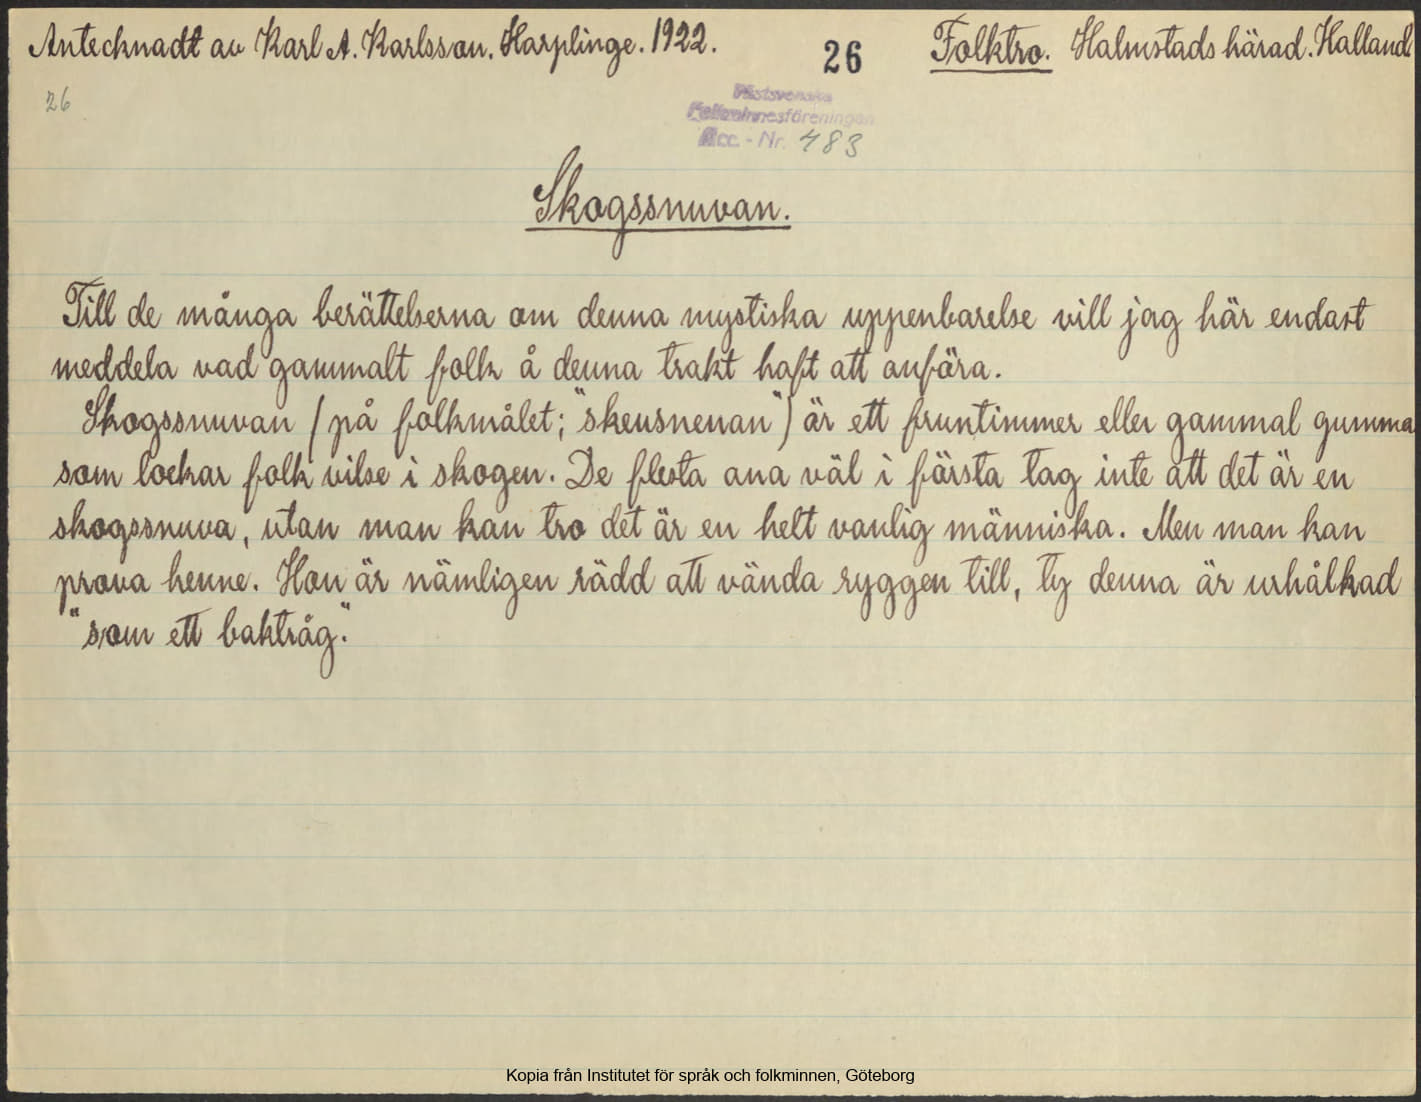 Antecknadt av Karl A. Karlsson. Harplinge. 1922.
26
Folktro. Halmstads härad. Halland
26
Västsvenska
Folkminnesföreningen
Acc. - Nr. 483
Skogssnuvan.
Till de många berättelserna om denna mystiska uppenbarelse vill jag här endast
meddela vad gammalt folk å denna trakt haft att anföra.
Skogssnuvan (på folkmålet; "skeusnenan") är ett fruntimmer eller gammal gumma
som lockar folk vilse i skogen. De flesta ana väl i första tag inte att det är en
skogssnuva, utan man kan tro det är en helt vanlig människa. Men man kan
prova henne. Hon är nämligen rädd att vända ryggen till, ty denna är urhålkad
"som ett baktråg."
Kopia från Institutet för språk och folkminnen, Göteborg